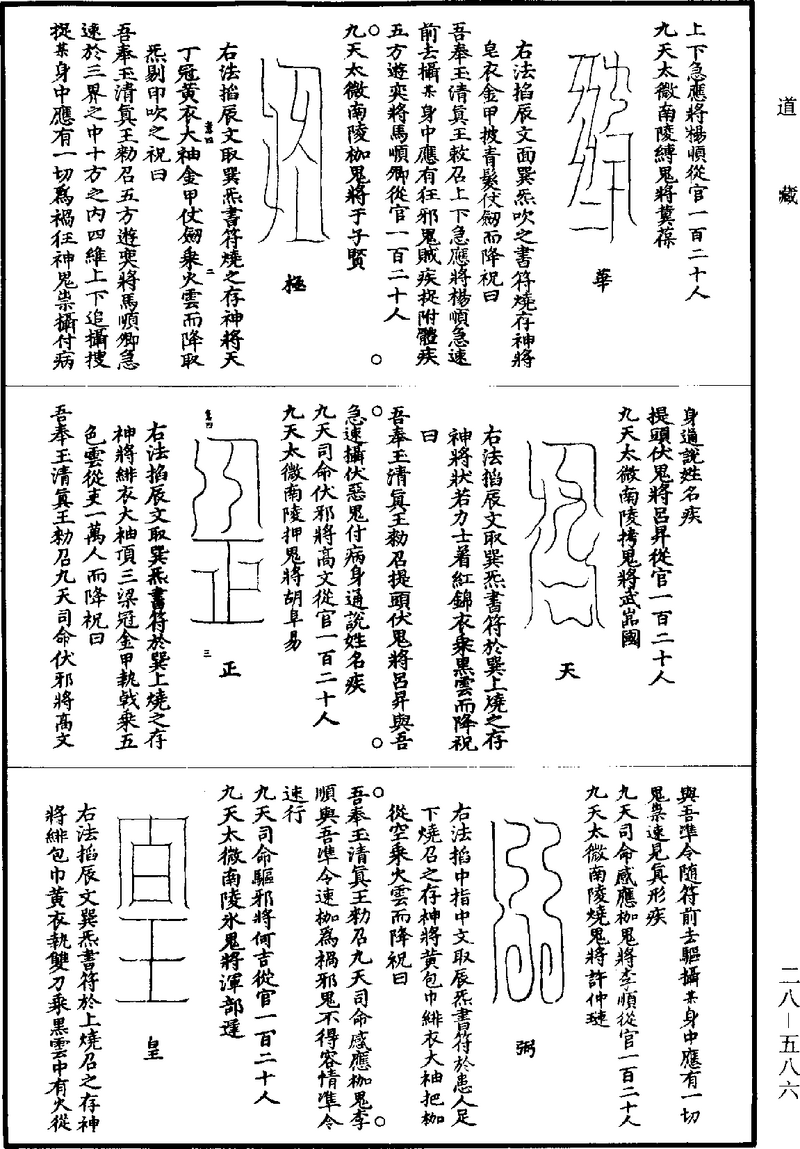 道藏
上下急應將楊順從官一百二十人
九天太微南陵縛鬼將冀葆
華
右法掐辰文面巽炁吹之書符燒存神將
皂衣金甲披青髮仗劒而降祝曰
吾奉玉清眞王敕召上下急應將楊順急速
前去攝某身中應有狂邪鬼賊疾捉附體疾
五方遊奕將馬順卿從官一百二十人
九天太微南陵枷鬼將于子賢
極
右法掐辰文取巽炁書符燒之存神將天
丁冠黃衣大袖金甲仗劒乘火雲而降取
炁剔甲吹之祝曰
吾奉玉清眞王勑召五方遊奕將馬順卿急
速於三界之中十方之內四維上下追攝搜
捉某身中應有一切爲禍狂神鬼祟攝付病
身通說姓名疾
提頭伏鬼將呂昇從官一百二十人
九天太微南陵拷鬼將武嵓國
天
右法掐辰文取巽炁書符於巽上燒之存
神將狀若力士着紅錦衣乘黑雲而降祝
曰
吾奉玉清眞王勑召提頭伏鬼將呂昇與吾
急速攝伏惡鬼付病身通說姓名疾
九天司命伏邪將高文從官一百二十人
九天太微南陵押鬼將胡阜易
正
右法掐辰文取巽炁書符於巽上燒之存
神將緋衣大袖頂三梁冠金甲執戟乘五
色雲從吏一萬人而降祝曰
吾奉玉清眞王勑召九天司命伏邪將高文
與吾準令隨符前去驅攝某身中應有一切
鬼祟速見眞形疾
九天司命感應枷鬼將李順從官一百二十人
九天太微南陵燒鬼將許仲璉
弼
右法掐中指中文取辰炁書符於患人足
下燒召之存神將黃包巾緋衣大袖把枷
從空乘火雲而降祝曰
吾奉玉清眞王勑召九天司命感應枷鬼李
順與吾準令速枷爲禍邪鬼不得容情準令
速行
九天司命驅邪將何吉從官一百二十人
九天太微南陵氷鬼將渾部遲
皇
右法掐辰文巽炁書符於上燒召之存神
將緋包巾黃衣執雙刀乘黑雲中有火從
二八—五八六